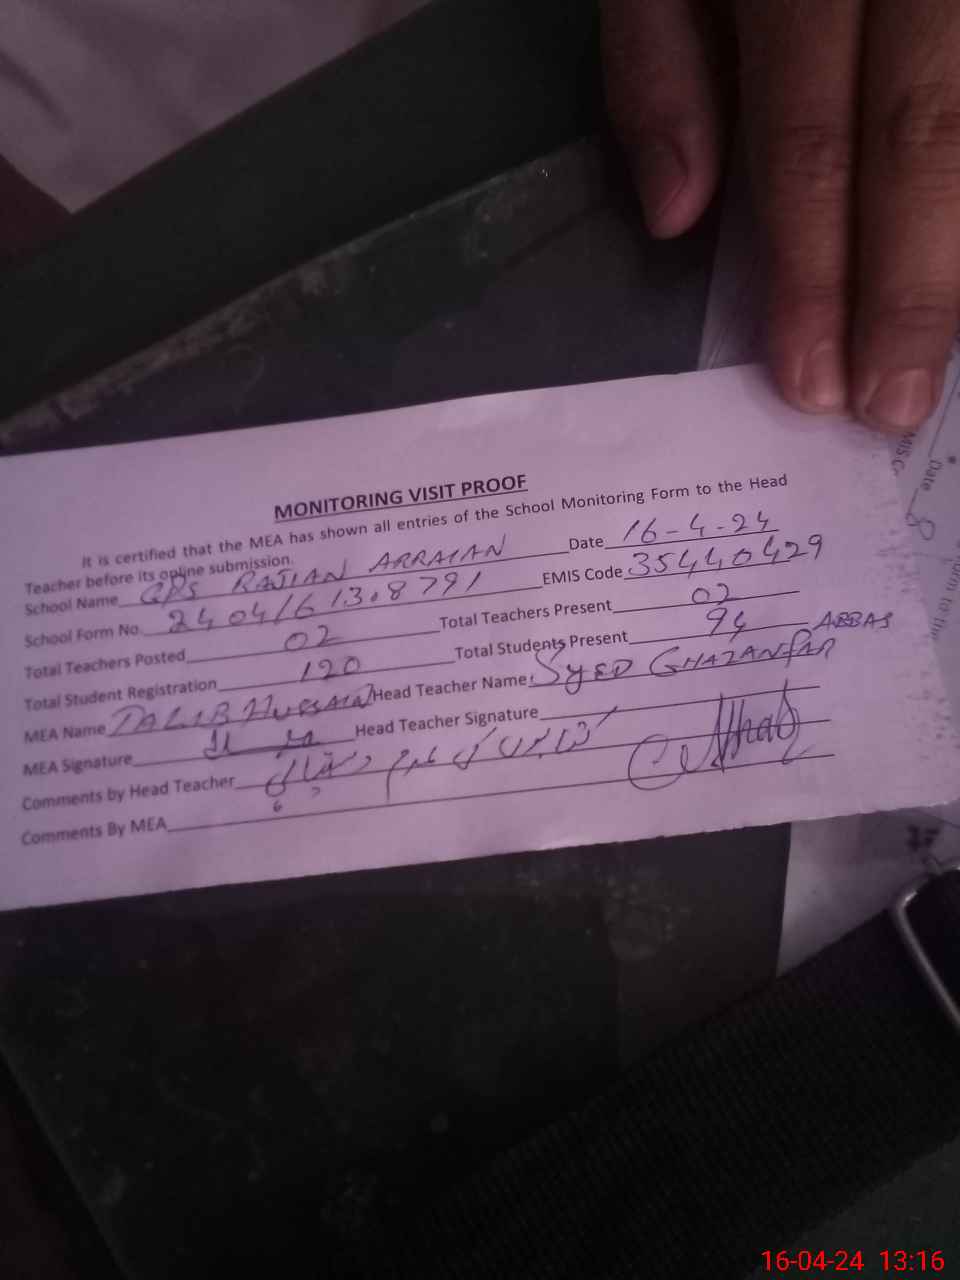 MONITORING VISIT PROOF
It is certified that the MEA has shown all entries of the School Monitoring Form to the Head
Teacher before its online submission.
School Name GPS RAJIAN ARRAIAN Date 16-4-24
School Form No. 2404161308791 EMIS Code 35440429
Total Teachers Posted 02 Total Teachers Present 02
Total Student Registration 120 Total Students Present 94
MEA Name TALIB HUSSAIN Head Teacher Name SYED GHAZANFAR ABBAS
MEA Signature Head Teacher Signature
Comments by Head Teacher
Comments By MEA
MIS C
Date
16-04-24 13:16